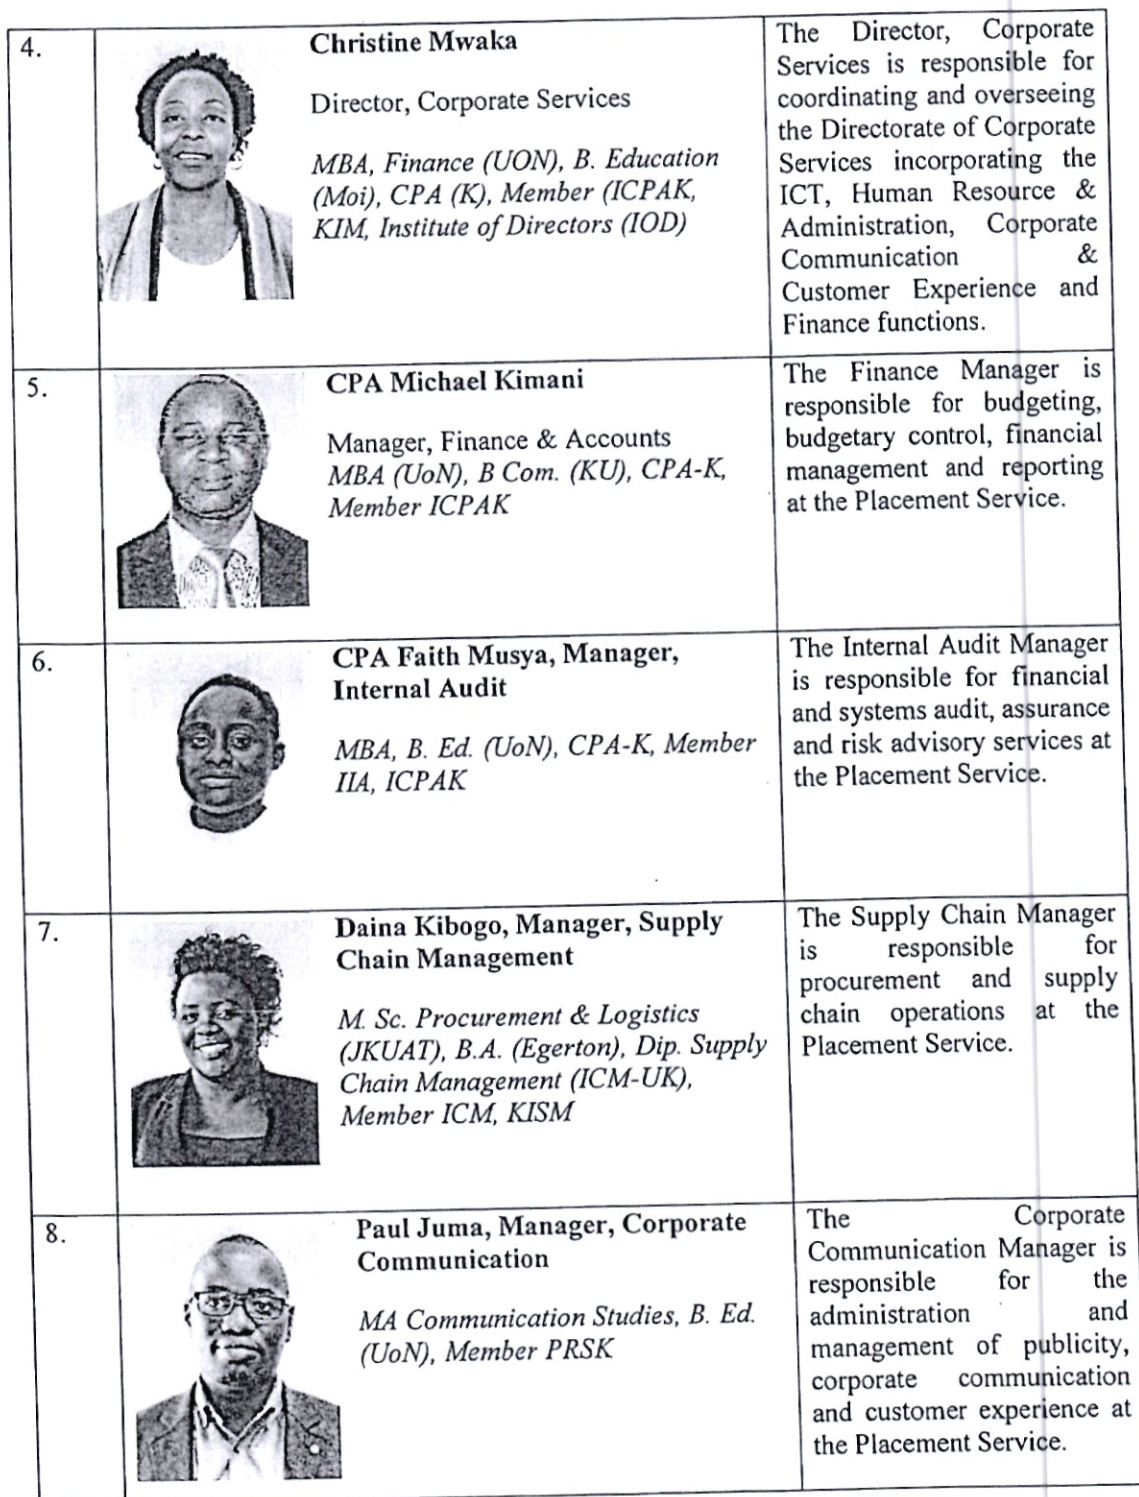 4.
Christine Mwaka
Director, Corporate Services
MBA, Finance (UON), B. Education
(Moi), CPA (K), Member (ICPAK,
KIM, Institute of Directors (IOD)
The Director, Corporate
Services is responsible for
coordinating and overseeing
the Directorate of Corporate
Services incorporating the
ICT, Human Resource &
Administration, Corporate
Communication &
Customer Experience and
Finance functions.
5.
CPA Michael Kimani
Manager, Finance & Accounts
MBA (UoN), B Com. (KU), CPA-K,
Member ICPAK
The Finance Manager is
responsible for budgeting,
budgetary control, financial
management and reporting
at the Placement Service.
6.
CPA Faith Musya, Manager,
Internal Audit
MBA, B. Ed. (UoN), CPA-K, Member
IIA, ICPAK
The Internal Audit Manager
is responsible for financial
and systems audit, assurance
and risk advisory services at
the Placement Service.
7.
Daina Kibogo, Manager, Supply
Chain Management
M. Sc. Procurement & Logistics
(JKUAT), B.A. (Egerton), Dip. Supply
Chain Management (ICM-UK),
Member ICM, KISM
The Supply Chain Manager
is responsible for
procurement and supply
chain operations at the
Placement Service.
8.
Paul Juma, Manager, Corporate
Communication
MA Communication Studies, B. Ed.
(UoN), Member PRSK
The Corporate
Communication Manager is
responsible for the
administration and
management of publicity,
corporate communication
and customer experience at
the Placement Service.